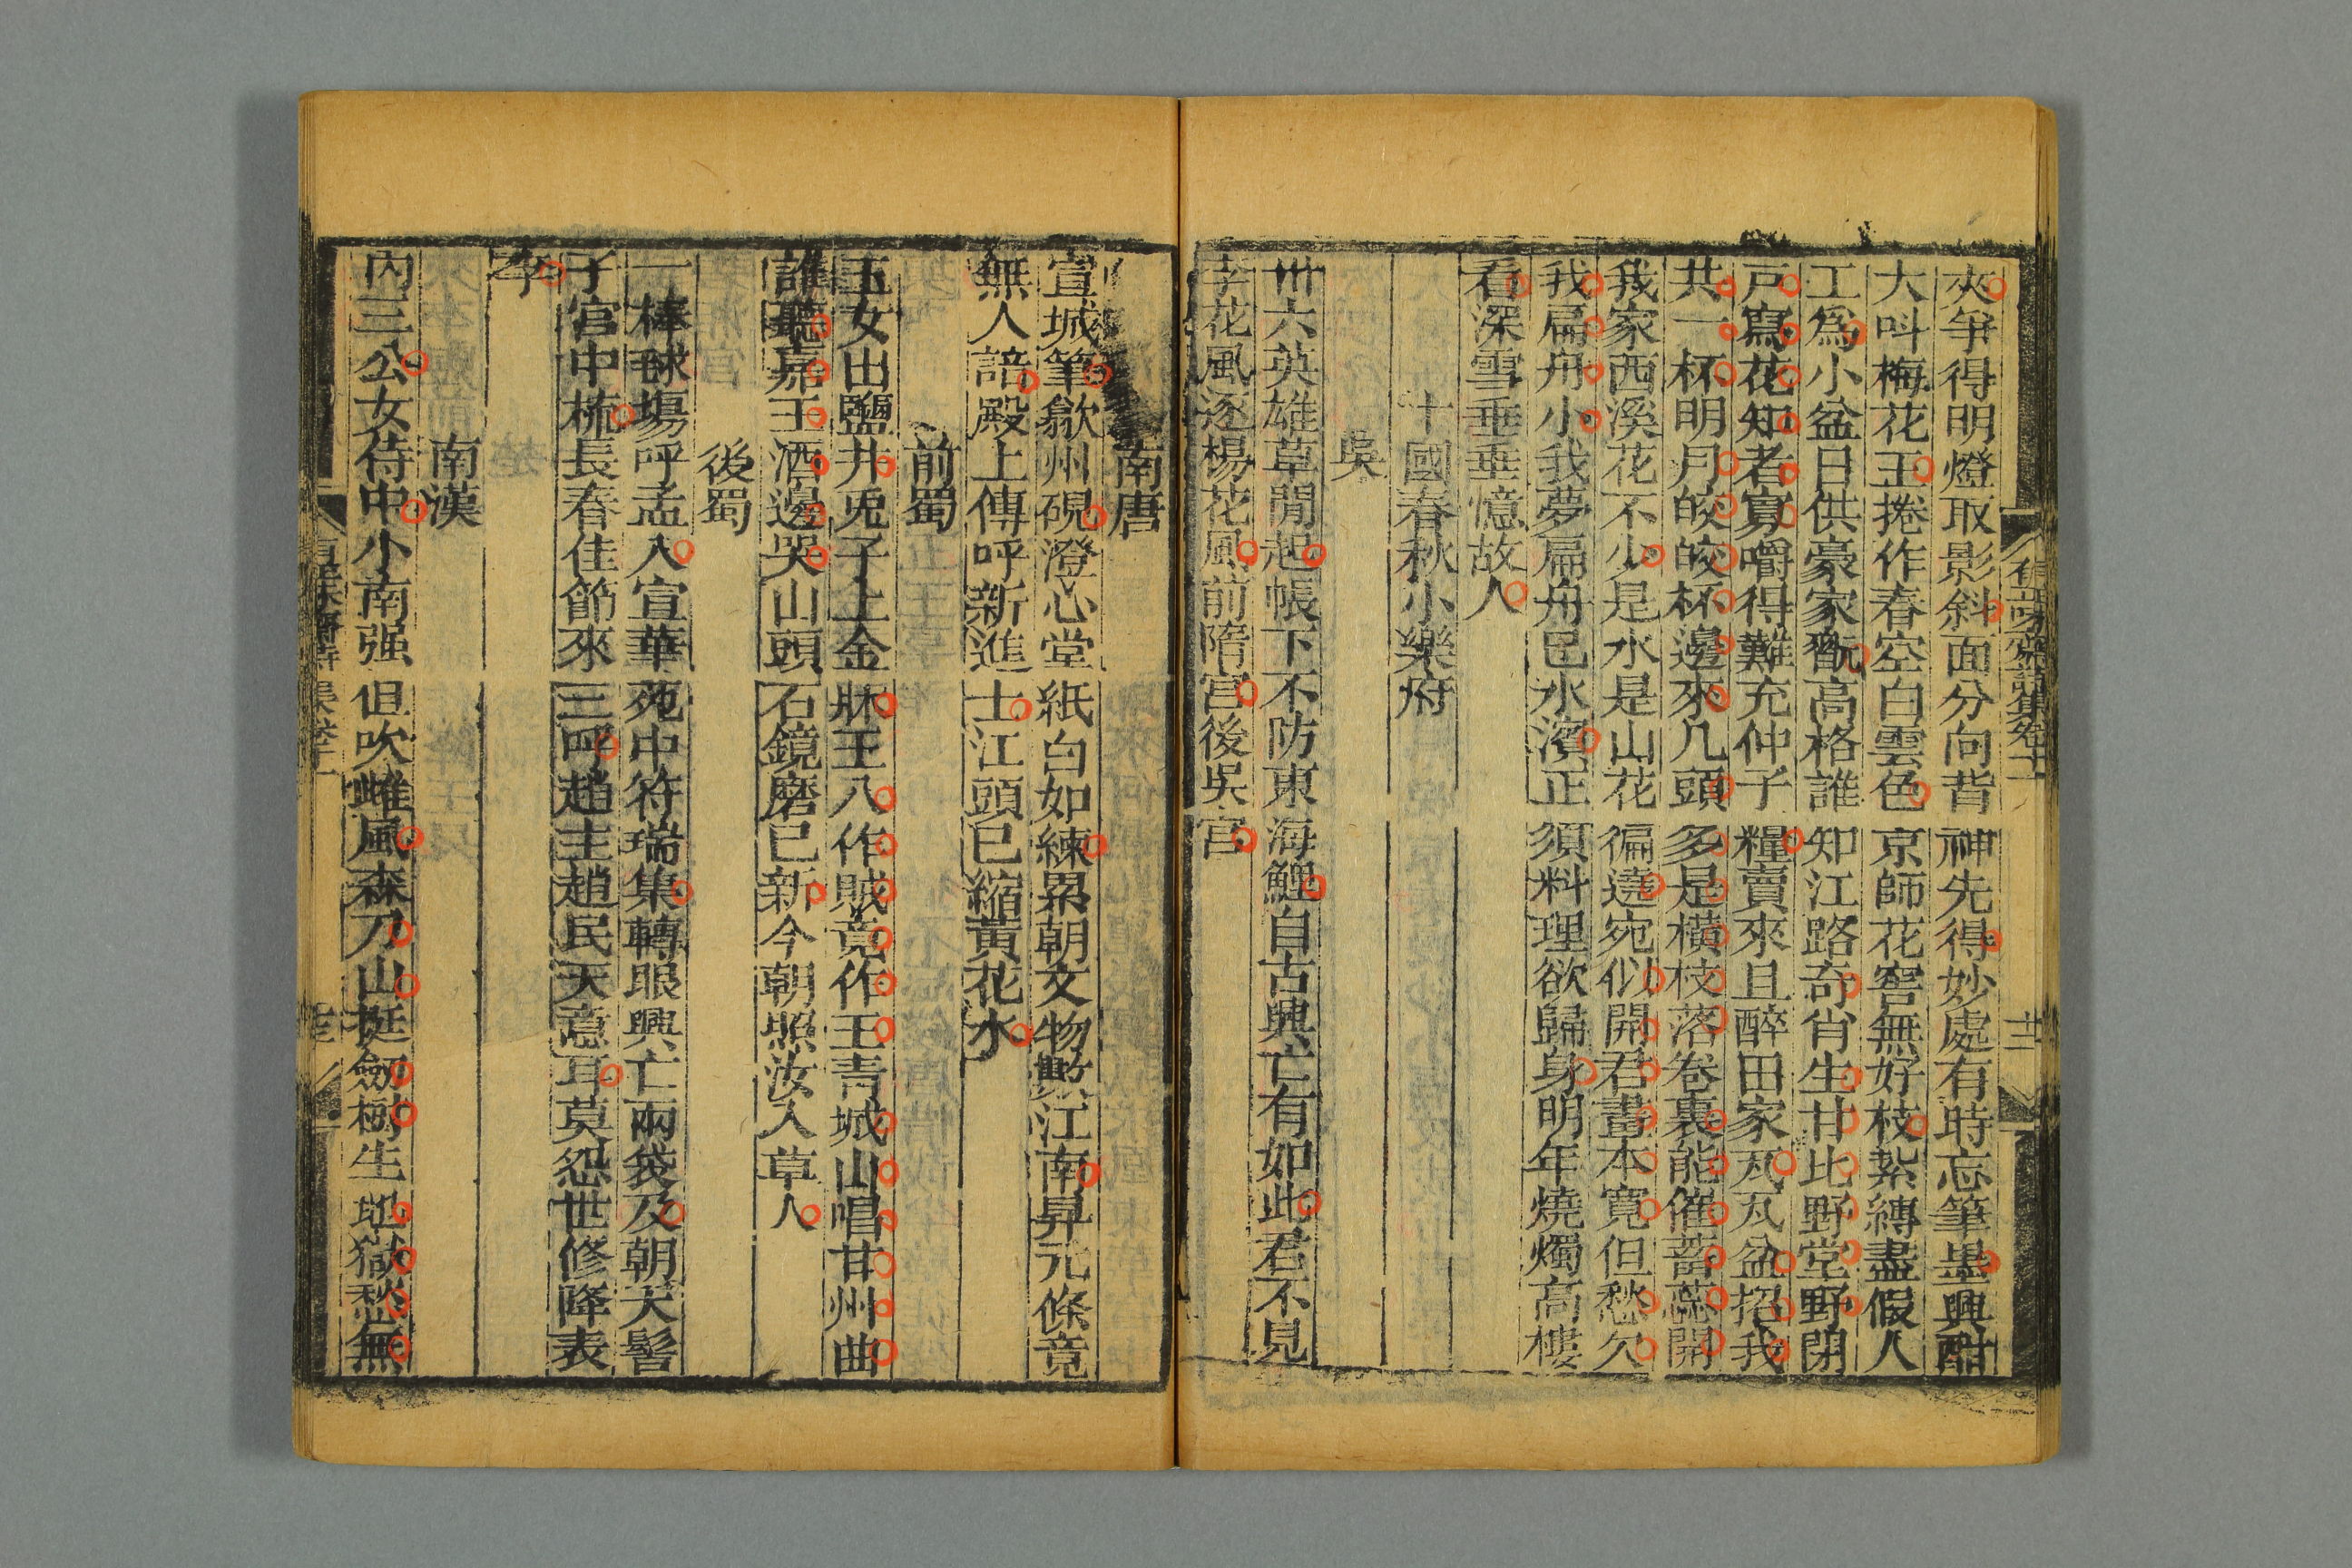 夾爭得明燈取影斜面分向背神先得妙處有時忘筆墨興酣
大叫梅花王捲作春空白雲色京師花窖無好枝紮縛盡假人
工爲小盆日供豪家翫高格誰知江路奇肖生甘比野堂野閉
戸寫花知者寡嚼得難充仲子糧賣來且醉田家瓦瓦盆招我
共一杯明月皎皎杯邊來几頭多是橫枝落卷裏能催蓓蕊開
我家西溪花不少是水是山花徧遶宛似開君畫本寛但愁欠
我扁舟小我夢扁舟已水濱正須料理欲歸身明年燒燭高樓
看深雪垂垂憶故人
十國春秋小樂府
吳
卅六英雄草閒起帳下不防東海鯉自古興亡有如此君不見
李花風逐楊花風前隋宮後吳宮
南唐
宣城筆歙州硯澄心堂紙白如練累朝文物數江南昇元條竟
無人諳殿上傳呼新進士江頭已縮黃花水
前蜀
玉女出鹽井兎子上金牀王八作賊竟作王青城山唱甘州曲
誰聽嘉王酒邊哭山頭石鏡磨已新今朝照汝入草人
後蜀
一棒毬塲呼孟入宣華苑中符瑞集轉眼興亡兩袋及朝天髻
子宮中梳長春佳節來三呼趙主趙民天意耳莫怨世修降表
李
南漢
內三公女侍中小南强但吹雌風森刀山挺劒樹生地獄愁無